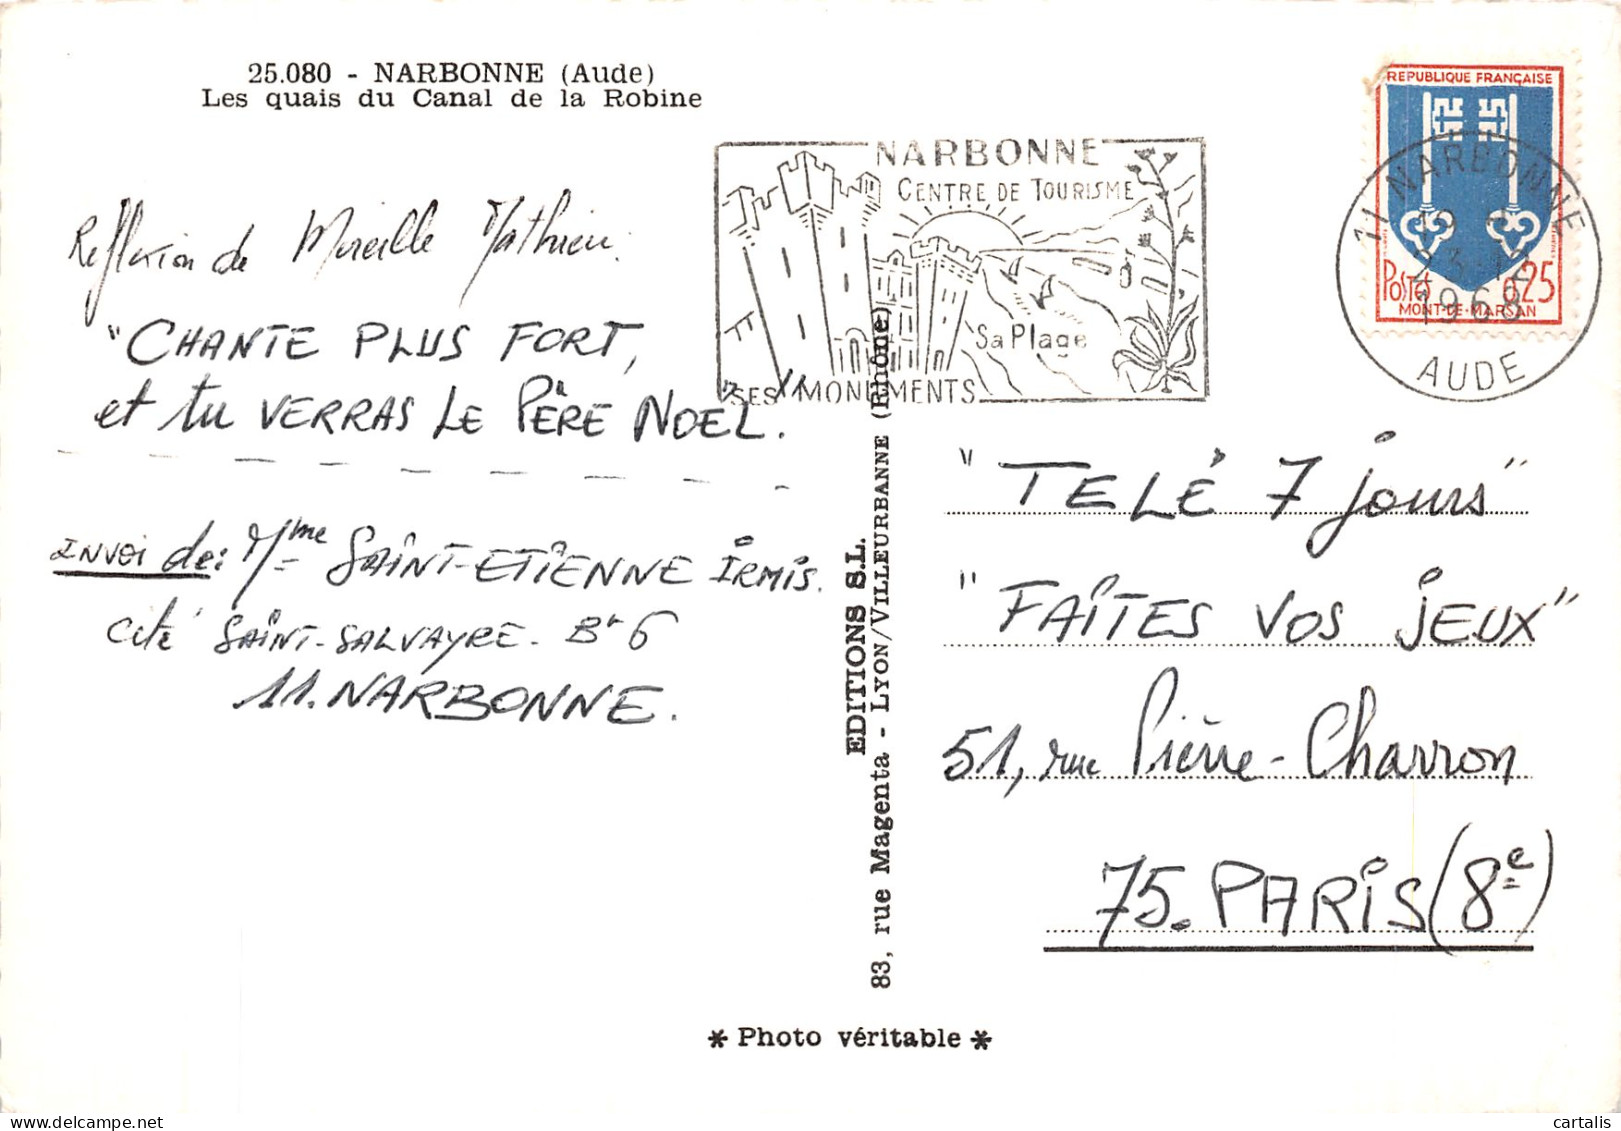 25.080 - NARBONNE (Aude)
Les quais du Canal de la Robine
Reflexion de Mireille Mathieu.
"CHANTE PLUS FORT,
et tu VERRAS LE PÈRE NOEL."
INVOI de: Mme SAINT-ETIENNE IRMIS.
Cité SAINT-SALVAYRE. Bt 6
11. NARBONNE.
EDITIONS S.L.
83, rue Magenta - LYON/VILLEURBANNE (Rhône)
NARBONNE
CENTRE DE TOURISME
Sa Plage
SES MONUMENTS
REPUBLIQUE FRANÇAISE
POSTES 0,25
MONT-DE-MARSAN
11 NARBONNE
19 H
23-12
1968
AUDE
"TELÉ 7 jours"
"FAITES VOS JEUX"
51, rue Pierre-Charron
75. PARIS (8e)
* Photo véritable *
cartalis
delcampe.net